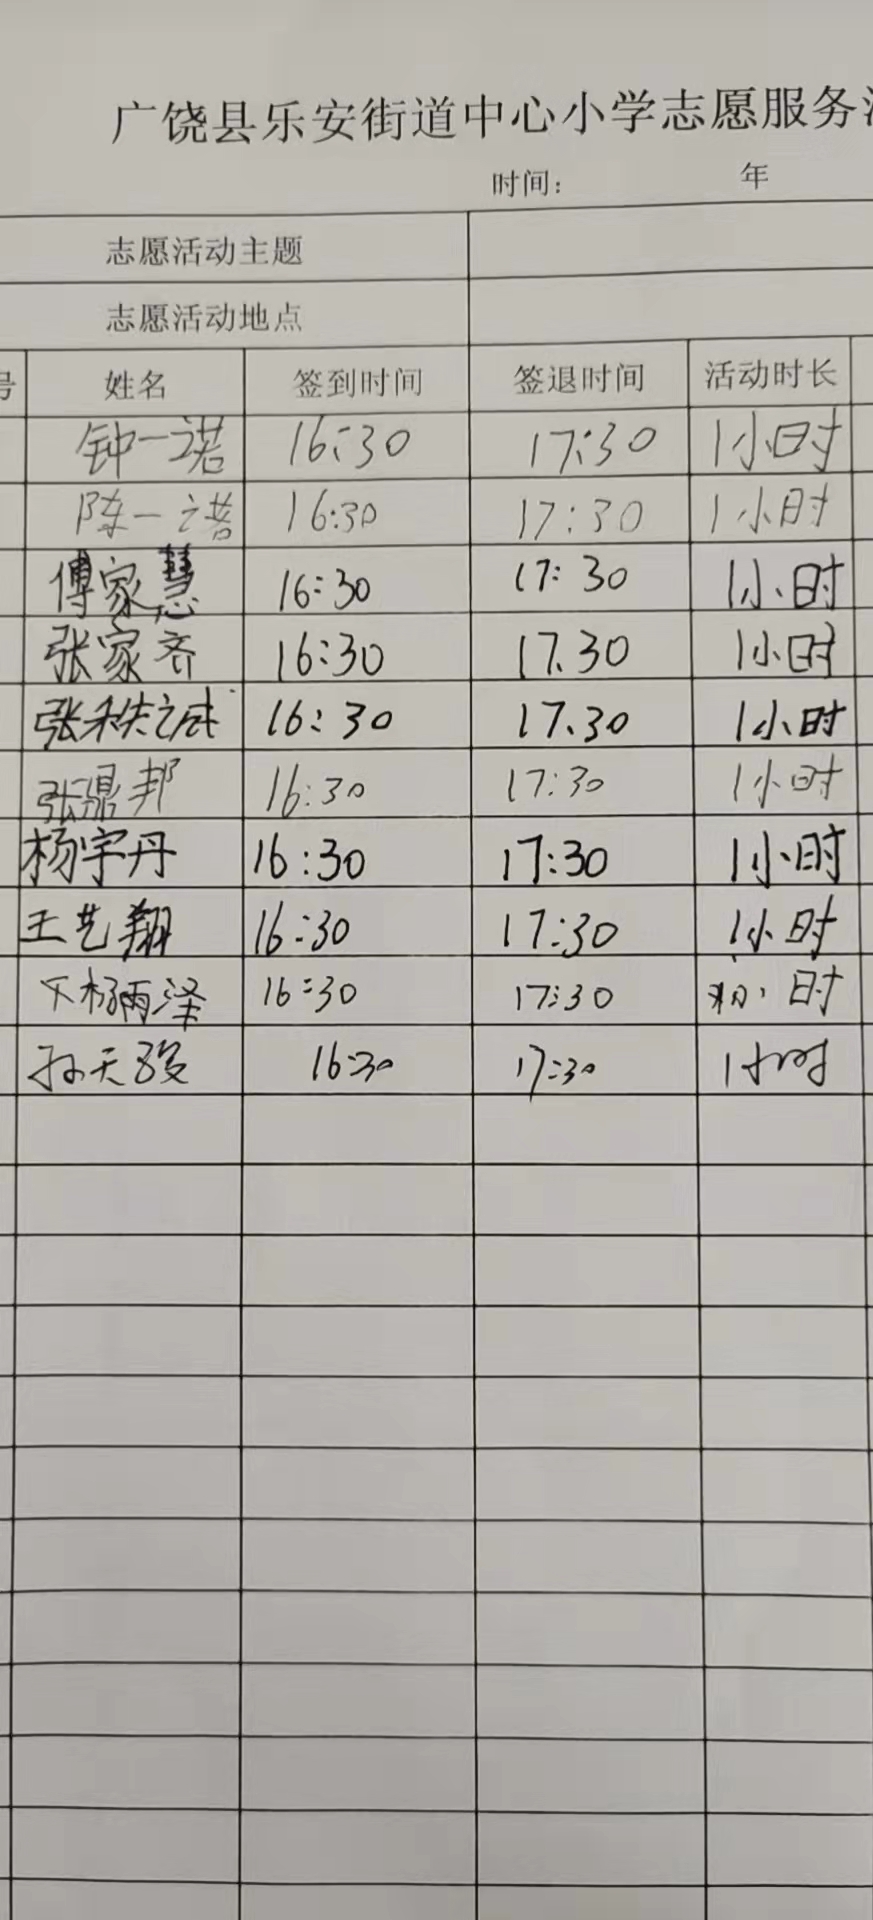 广饶县乐安街道中心小学志愿服务
时间： 年
志愿活动主题
志愿活动地点
号 姓名 签到时间 签退时间 活动时长
钟一诺 16:30 17:30 1小时
陈一诺 16:30 17:30 1小时
傅家慧 16:30 17:30 1小时
张家齐 16:30 17.30 1小时
张秩诚 16:30 17.30 1小时
张鼎邦 16:30 17:30 1小时
杨宇丹 16:30 17:30 1小时
王艺翔 16:30 17:30 1小时
杨雨泽 16:30 17:30 小时
孙天骏 16:30 17:30 1小时